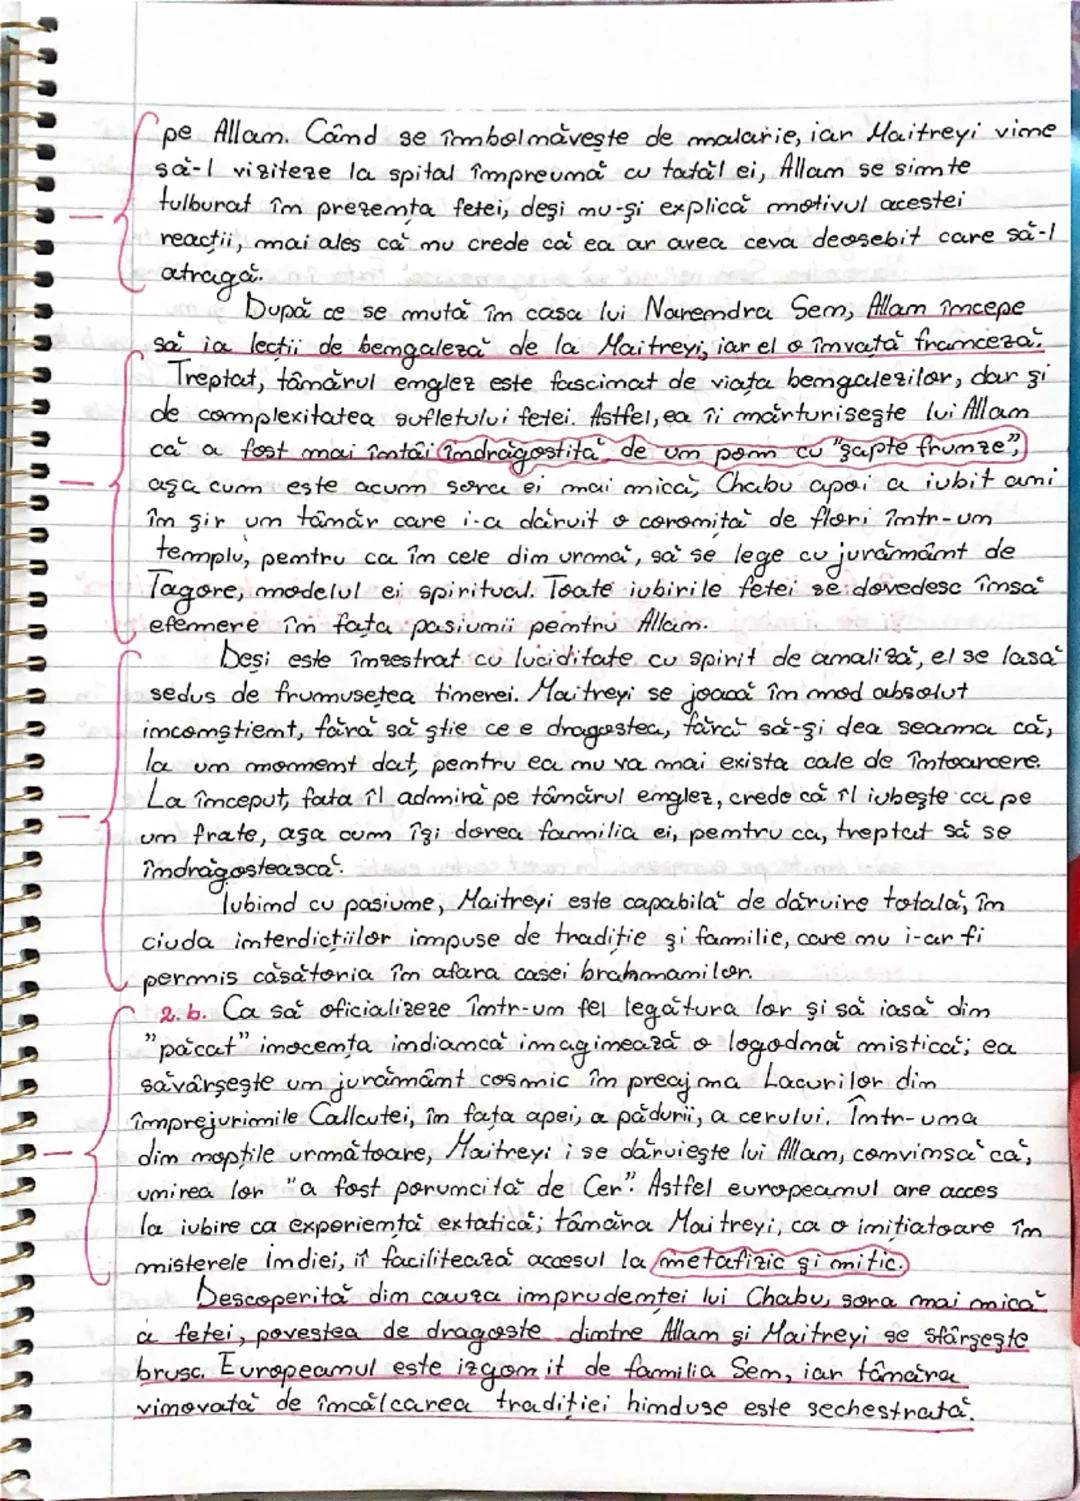 pe Allan. Când se îmbolnăvește de malarie, iar Maitreyi vine
să-l viziteze la spital împreună cu tatăl ei, Allan se simte
tulburat în prezența fetei, deși nu-și explică motivul acestei
reacții, mai ales că nu crede că ea ar avea ceva deosebit care să-l
atragă.
După ce se mută în casa lui Narendra Sen, Allan începe
să ia lecții de bengaleză de la Maitreyi, iar el o învață franceză.
Treptat, tânărul englez este fascinat de viața bengalezilor, dar și
de complexitatea sufletului fetei. Astfel, ea îi mărturisește lui Allan
că a fost mai întâi îndrăgostită de un pom cu "șapte frunze",
așa cum este acum sora ei mai mică, Chabu apoi a iubit ani
în șir un tânăr care i-a dăruit o coroniță de flori într-un
templu, pentru ca în cele din urmă, să se lege cu jurământ de
Tagore, modelul ei spiritual. Toate iubirile fetei se dovedesc însă
efemere în fața pasiunii pentru Allan.
Deși este înzestrat cu luciditate cu spirit de analiză, el se lasă
sedus de frumusețea tinerei. Maitreyi se joacă în mod absolut
inconștient, fără să știe ce e dragostea, fără să-și dea seama că,
la un moment dat, pentru ea nu va mai exista cale de întoarcere.
La început, fata îl admiră pe tânărul englez, crede că îl iubește ca pe
un frate, așa cum își dorea familia ei, pentru ca, treptat să se
îndrăgostească.
Iubind cu pasiune, Maitreyi este capabilă de dăruire totală, în
ciuda interdicțiilor impuse de tradiție și familie, care nu i-ar fi
permis căsătoria în afara casei brahmanilor.
2.b. Ca să oficializeze într-un fel legătura lor și să iasă din
"păcat" inocența indiancă imaginează o logodnă mistică; ea
săvârșește un jurământ cosmic în preajma Lacurilor din
împrejurimile Callcutei, în fața apei, a pădurii, a cerului. Într-una
din nopțile următoare, Maitreyi i se dăruiește lui Allan, convinsă că,
unirea lor "a fost poruncită de Cer". Astfel europeanul are acces
la iubire ca experiență extatică; tânăra Maitreyi, ca o inițiatoare în
misterele Indiei, îi facilitează accesul la metafizic și mitic.
Descoperită din cauza imprudenței lui Chabu, sora mai mică
a fetei, povestea de dragoste dintre Allan și Maitreyi se sfârșește
brusc. Europeanul este izgonit de familia Sen, iar tânăra
vinovată de încălcarea tradiției hinduse este sechestrată.